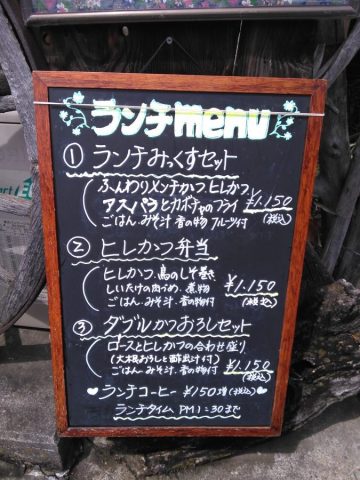 ランチmenu
① ランチみっくすセット
ふんわりメンチかつ、ヒレかつ
アスパラとカボチャのフライ ¥1.150
ごはん.みそ汁 香の物 フルーツ付 (税込)
② ヒレかつ弁当
ヒレかつ、鳥のしそ巻き
しいたけの肉づめ、煮物 ¥1.150
ごはん.みそ汁.香の物付 (税込)
③ ダブルかつおろしセット
ロースとヒレかつの合わせ盛り
(大根おろしと酢 付) ¥1.150
ごはん.みそ汁.香の物付 (税込)
♥ランチコーヒー ¥150増(税込)♥
ランチタイム PM1:30まで